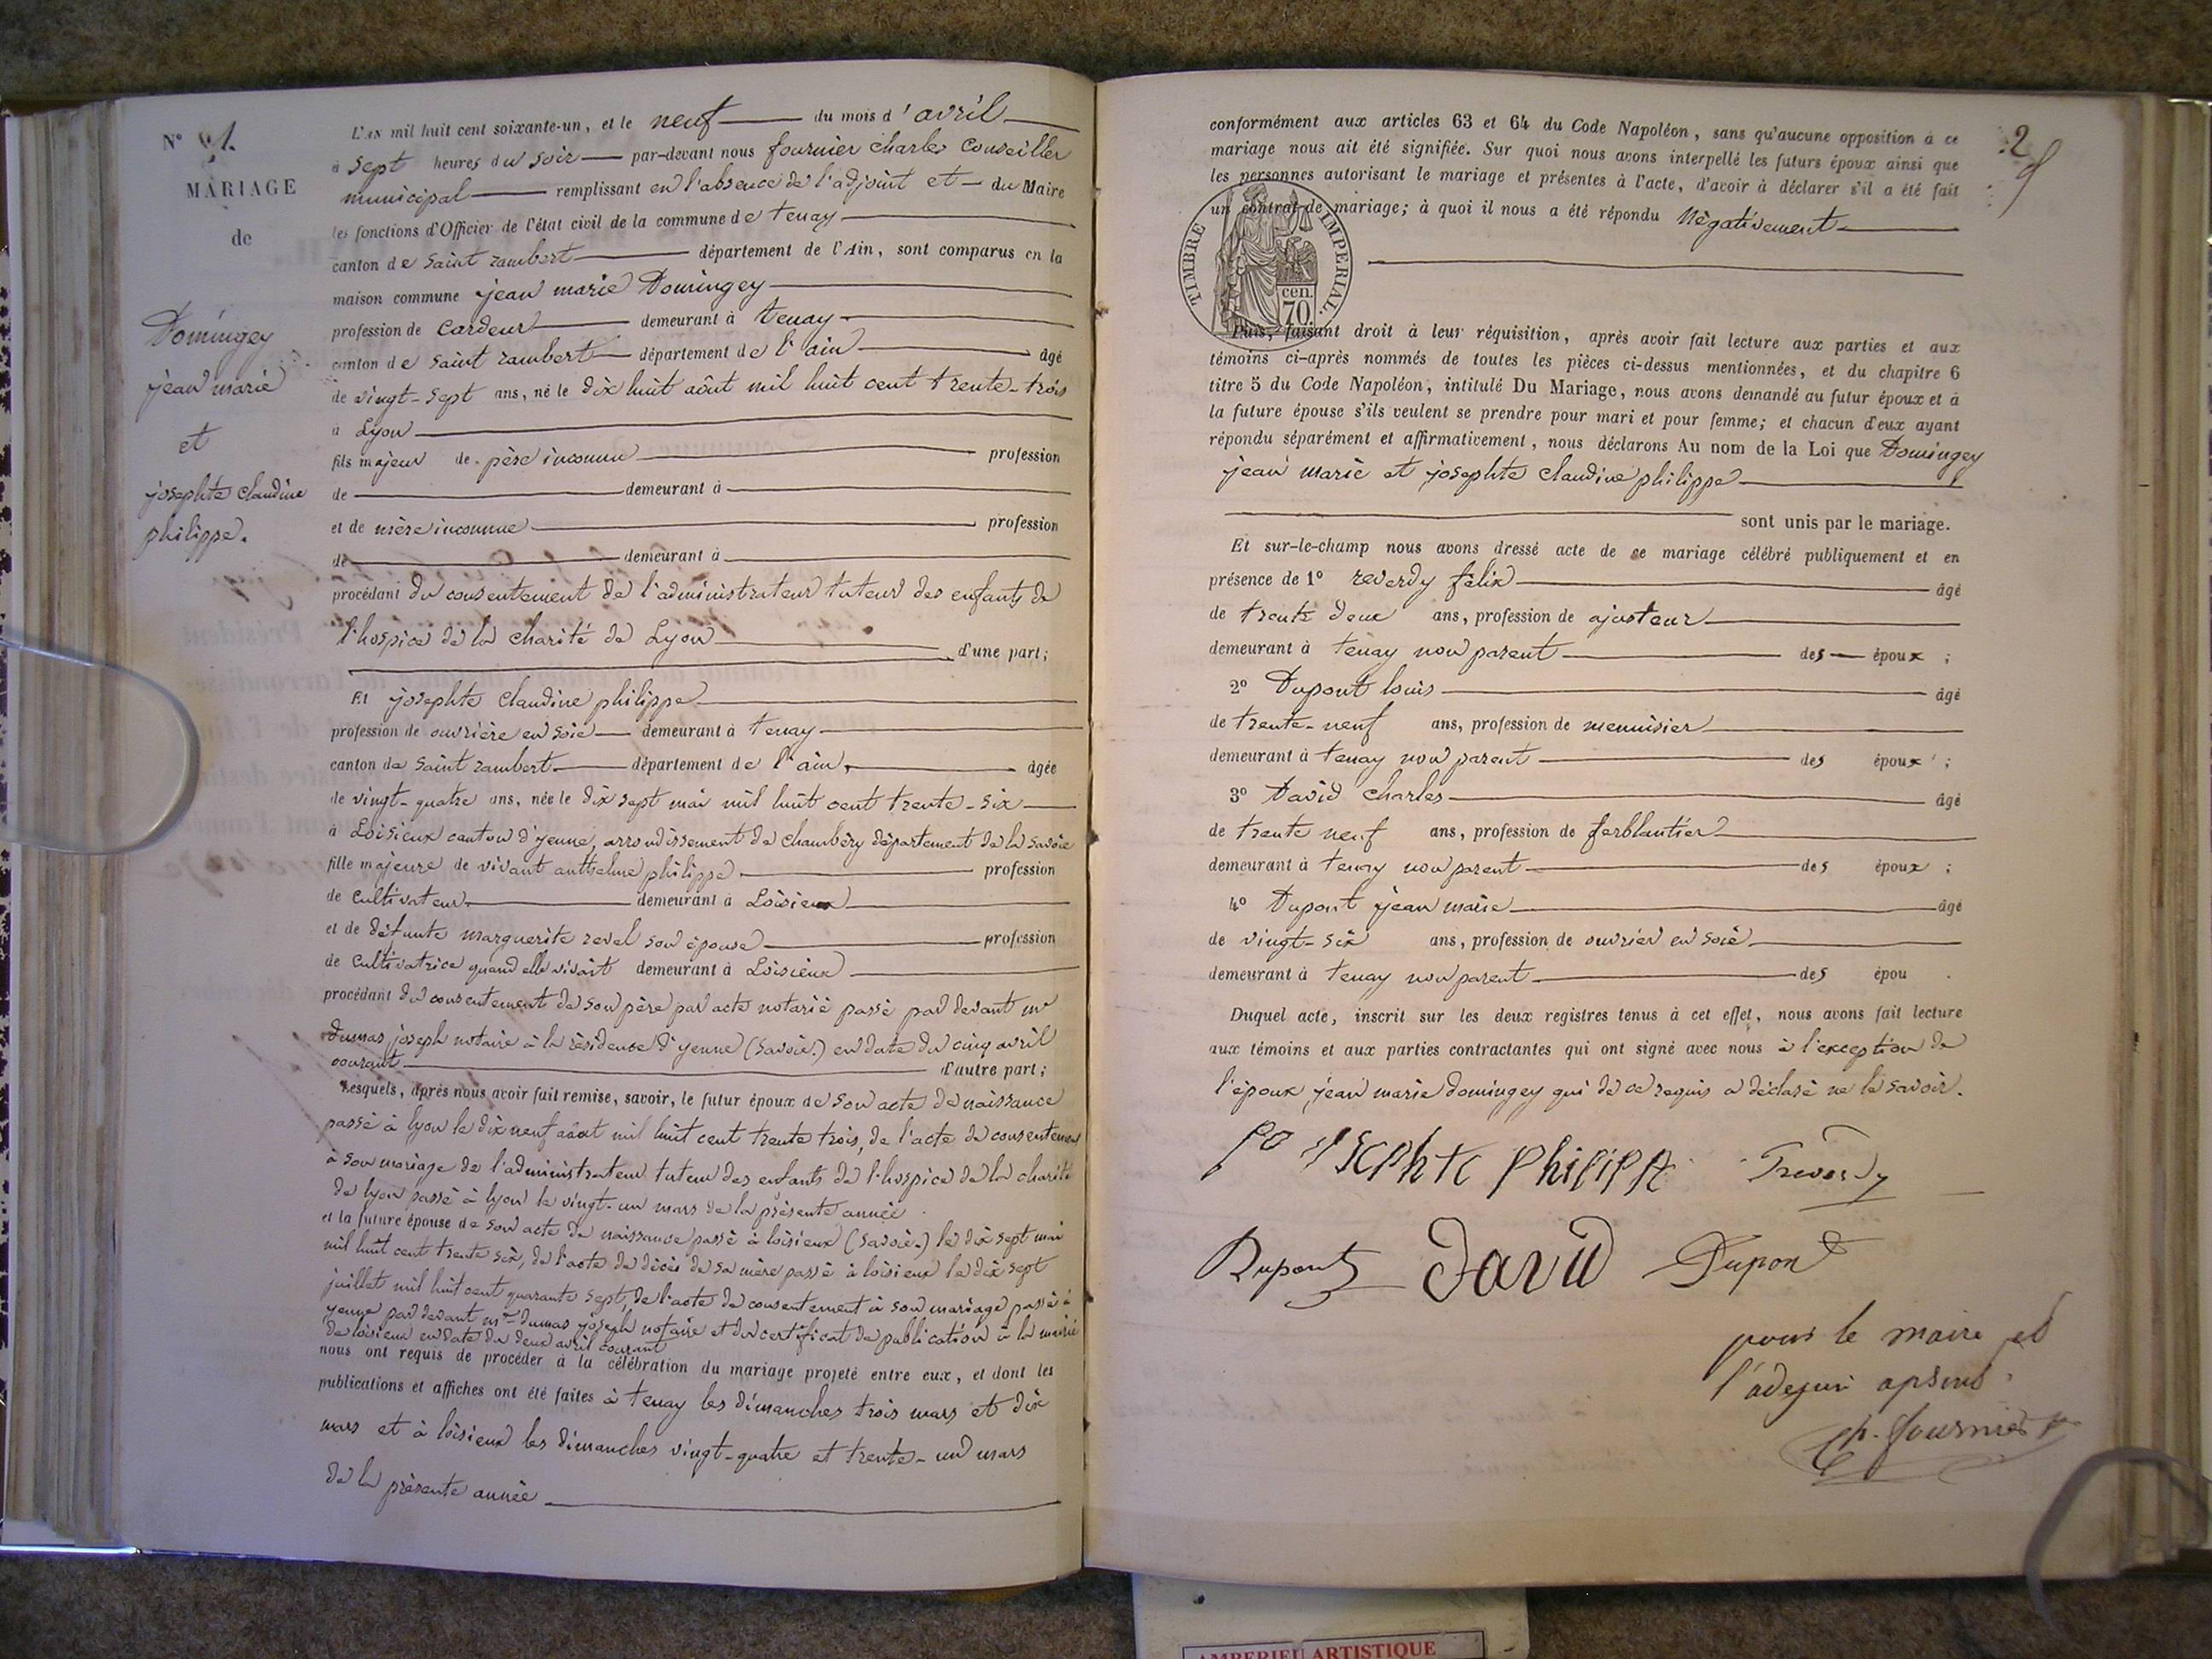 N° 1.
MARIAGE
de
Domingey
jean marie
et
josephte claudine
philippe.
L'AN mil huit cent soixante-un, et le neuf du mois d'avril
à sept heures du soir par-devant nous fournier charles Conseiller
municipal remplissant en l'absence de l'adjoint et du Maire
les fonctions d'Officier de l'état civil de la commune de tenay
canton de Saint rambert département de l'Ain, sont comparus en la
maison commune jean marie Domingey
profession de Cardeur demeurant à tenay
canton de saint rambert département de l'ain âgé
de vingt-sept ans, né le dix huit aôut mil huit cent trente-trois
à Lyon
fils majeur de père inconnu profession
de demeurant à
et de mère inconnue profession
de demeurant à
procédant du consentement de l'administrateur tuteur des enfants de
l'hospice de la charité de Lyon d'une part;
Et josephte Claudine philippe
profession de ouvrière en soie demeurant à tenay
canton de Saint rambert département de l'ain, âgée
de vingt-quatre ans, née le dix sept mai mil huit cent trente-six
à Loisieux canton d'yenne, arrondissement de chambéry département de la savoie
fille majeure de vivant anthelme philippe profession
de cultivateur demeurant à Loisieux
et de défunte marguerite revel son épouse profession
de cultivatrice quand elle vivait demeurant à Loisieux
procédant du consentement de son père par acte notarié passé par devant me
Dumas joseph notaire à la résidence d'yenne (savoie.) en date du cinq avril
courant d'autre part;
Lesquels, après nous avoir fait remise, savoir, le futur époux de son acte de naissance
passé à lyon le dix neuf aôut mil huit cent trente trois, de l'acte de consentement
à son mariage de l'administrateur tuteur des enfants de l'hospice de la charité
de lyon passé à lyon le vingt-un mars de la présente année
et la future épouse de son acte de naissance passé à loisieux (savoie.) le dix sept mai
mil huit cent trente six, de l'acte de décès de sa mère passé à loisieux le dix sept
juillet mil huit cent quarante sept, de l'acte de consentement à son mariage passé à
yenne par devant me Dumas joseph notaire et du certificat de publication à la mairie
de loisieux en date du deux avril courant
nous ont requis de procéder à la célébration du mariage projeté entre eux, et dont les
publications et affiches ont été faites à tenay les dimanches trois mars et dix
mars et à loisieux les dimanches vingt-quatre et trente-un mars
de la présente année
2
conformément aux articles 63 et 64 du Code Napoléon, sans qu'aucune opposition à ce
mariage nous ait été signifiée. Sur quoi nous avons interpellé les futurs époux ainsi que
les personnes autorisant le mariage et présentes à l'acte, d'avoir à déclarer s'il a été fait
un contrat de mariage; à quoi il nous a été répondu Négativement
TIMBRE IMPERIAL.
cen.
70
Puis, faisant droit à leur réquisition, après avoir fait lecture aux parties et aux
témoins ci-après nommés de toutes les pièces ci-dessus mentionnées, et du chapitre 6
titre 5 du Code Napoléon, intitulé Du Mariage, nous avons demandé au futur époux et à
la future épouse s'ils veulent se prendre pour mari et pour femme; et chacun d'eux ayant
répondu séparément et affirmativement, nous déclarons Au nom de la Loi que Domingey
jean marie et josephte Claudine philippe
sont unis par le mariage.
Et sur-le-champ nous avons dressé acte de ce mariage célébré publiquement et en
présence de 1° reverdy félix âgé
de trente deux ans, profession de ajusteur
demeurant à tenay non parent des époux ;
2° Dupont louis âgé
de trente-neuf ans, profession de menuisier
demeurant à tenay non parent des époux ;
3° David charles âgé
de trente neuf ans, profession de ferblantier
demeurant à tenay non parent des époux ;
4° Dupont jean marie âgé
de vingt-six ans, profession de ouvrier en soie
demeurant à tenay non parent des épou .
Duquel acte, inscrit sur les deux registres tenus à cet effet, nous avons fait lecture
aux témoins et aux parties contractantes qui ont signé avec nous à l'exception de
l'époux, jean marie domingey qui de ce requis a déclaré ne le savoir.
Dupont David Dupont
pour le maire et
Ch. fournier
AMBERIEU ARTISTIQUE